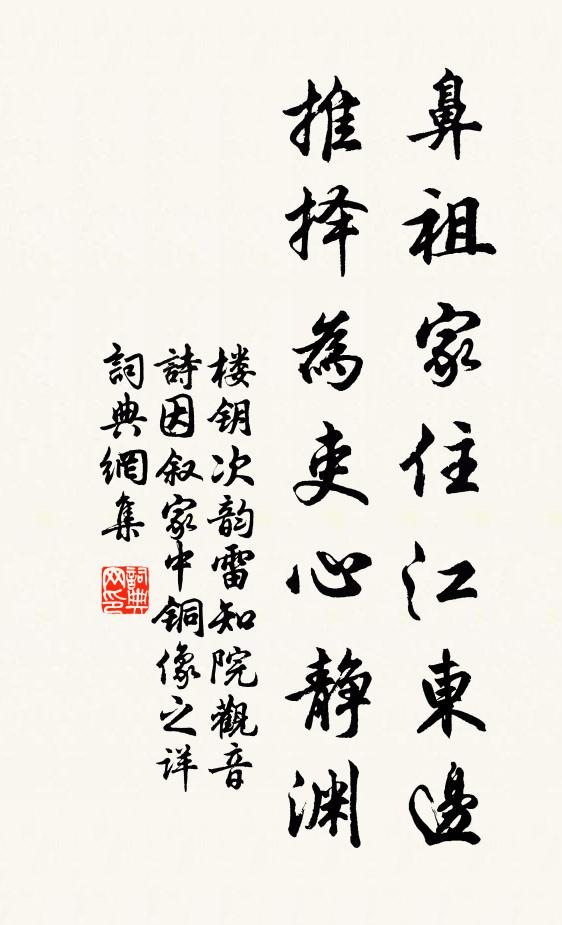 鼻祖家住江東邊
推择為吏心静渊
楼钥次韵雷知院觀音
詩因叙家中銅像之详
詞典網集
詞典
网印